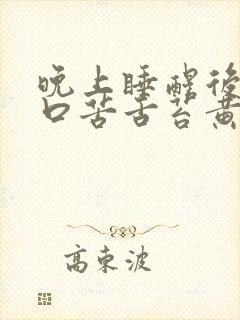 晚上睡醒後
口苦舌苔黄
高東波